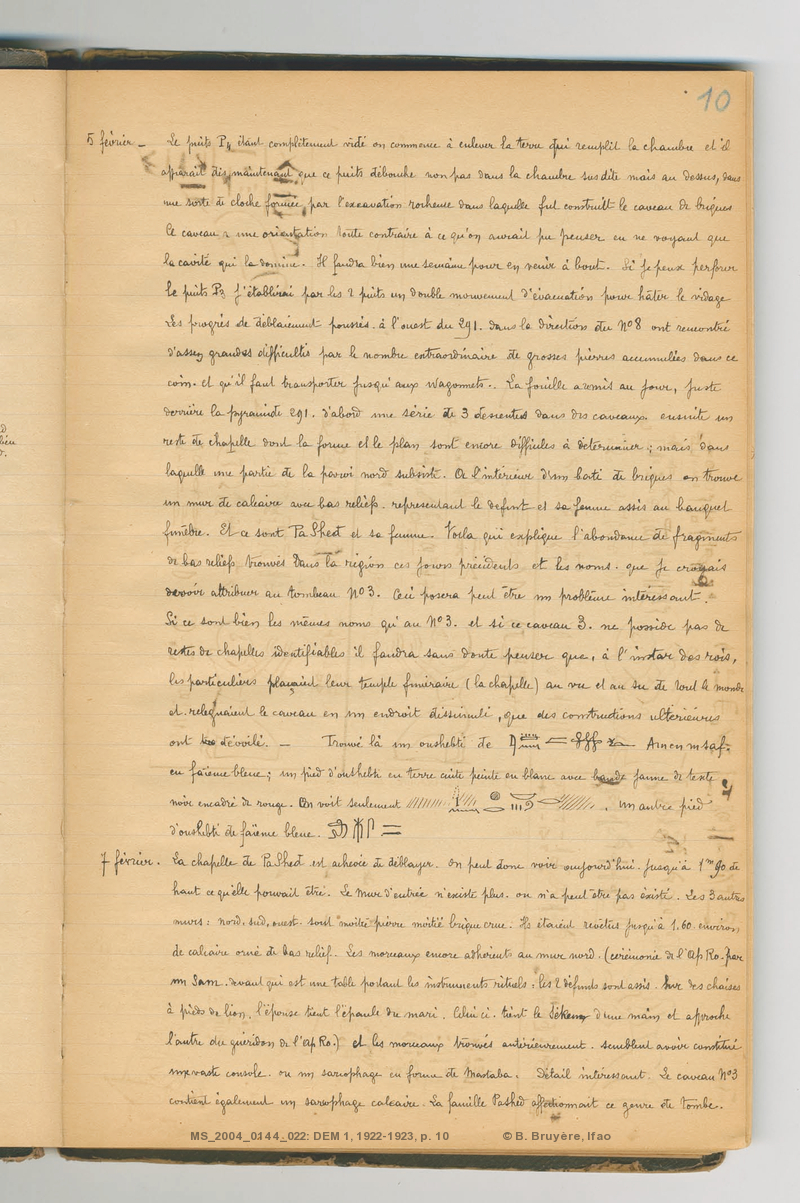 10
5 février _ Le puits P4 étant complètement vidé on commence à enlever la terre qui remplit la chambre et il
apparait dès maintenant que ce puits débouche non pas dans la chambre susdite mais au dessus, dans
une sorte de cloche formée par l'excavation rocheuse dans laquelle fut construit le caveau de briques
Ce caveau a une orientation toute contraire à ce qu'on aurait pu penser en ne voyant que
la cavité qui la domine. Il faudra bien une semaine pour en venir à bout. Si je peux perforer
le puits P3 j'établirai par les 2 puits un double mouvement d'évacuation pour hâter le vidage
Les progrès de déblaiement poussés à l'ouest du 291. dans la direction du N°8 ont rencontré
d'assez grandes difficultés par le nombre extraordinaire de grosses pierres accumulées dans ce
coin. et qu'il faut transporter jusqu'aux wagonnets. La fouille a remis au jour, juste
derrière la pyramide 291. d'abord une série de 3 descentes dans des caveaux. ensuite un
reste de chapelle dont la forme et le plan sont encore difficiles à déterminer ; mais dans
laquelle une partie de la paroi nord subsiste. A l'intérieur d'un bati de briques on trouve
un mur de calcaire avec bas reliefs. representant le defunt et sa femme assis au banquet
funèbre. Et ce sont PaShed et sa femme. Voila qui explique l'abondance de fragments
de bas reliefs trouvés dans la région ces jours précédents et les noms. que je croyais
devoir attribuer au tombeau N°3. Ceci posera peut être un problème intéressant.
Si ce sont bien les mêmes noms qu'au N°3. et si ce caveau 3. ne possède pas de
restes de chapelles identifiables il faudra sans doute penser que, à l'instar des rois,
les particuliers plaçaient leur temple funéraire (la chapelle) au vu et au su de tout le monde
et releguaient le caveau en un endroit dissimulé, que des constructions ultérieures
ont dévoilé. _ Trouvé là un oushebti de Amenmsaf.
en faïence bleue ; un pied d'oushebti en terre cuite peinte en blanc avec bande jaune de texte
noir encadré de rouge. On voit seulement . un autre pied
d'oushebti de faïence bleue.
7 février. La chapelle de PaShed est achevée de déblayer. On peut donc voir aujourd'hui. jusqu'à 1m90 de
haut ce qu'elle pouvait être. Le mur d'entrée n'existe plus. ou n'a peut être pas existé. Les 3 autres
murs : nord. sud, ouest. sont moitié pierre moitié brique crue. Ils étaient revêtus jusqu'à 1.60 environ
de calcaire orné de bas relief. Les morceaux encore adhérents au mur nord. (cérémonie de l'Ap Ro. par
un Sam. devant qui est une table portant les instruments rituels : les 2 défunts sont assis. sur des chaises
à pieds de lion, l'épouse tient l'épaule du mari. Celui ci. tient le d'une main et approche
l'autre du guéridon de l'ap Ro.) et les morceaux trouvés antérieurement. semblent avoir constitué
une vaste console. ou un sarcophage en forme de Mastaba. Détail intéressant. Le caveau N°3
contient également un sarcophage calcaire. La famille Pashed affectionnait ce genre de tombe.
MS_2004_0144_022: DEM 1, 1922-1923, p. 10 © B. Bruyère, Ifao